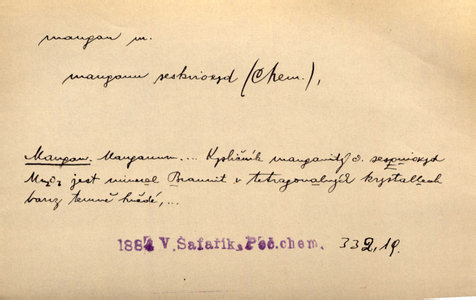 mangan m.
manganu seskvioxyd (Chem.),
Mangan. Manganum.... Kysličník manganitý č. seskvioxyd
jest minerál Braunit v tetragonalných krystallech
barvy temně hnědé,...
1882 V. Šafařík, Poč.chem. 332,19.